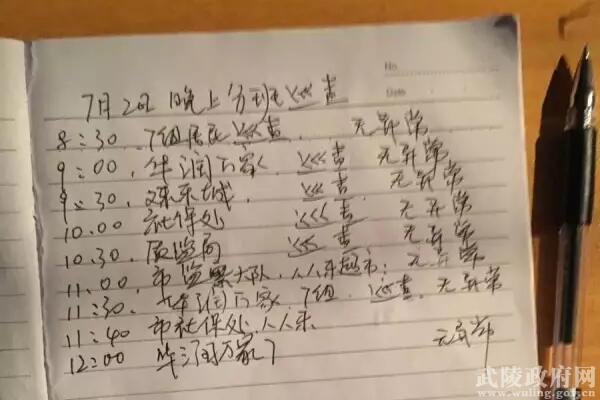 No.
Date
7月2日 晚上分班巡查
8:30. 7组居民巡查. 无异常
9:00. 华润万家 巡查 无异常
9:30. 娱乐城. 巡查 无异常
10.00 社保处 巡查 无异常
10.30. 质监局 巡查 无异常
11.00. 市监察大队, 人人乐超市: 无异常
11:30. 华润万家. 7组. 巡查. 无异常
11:40 市社保处. 人人乐
12:00 华润万家 7 无异常
武陵政府网
www.wuling.gov.cn